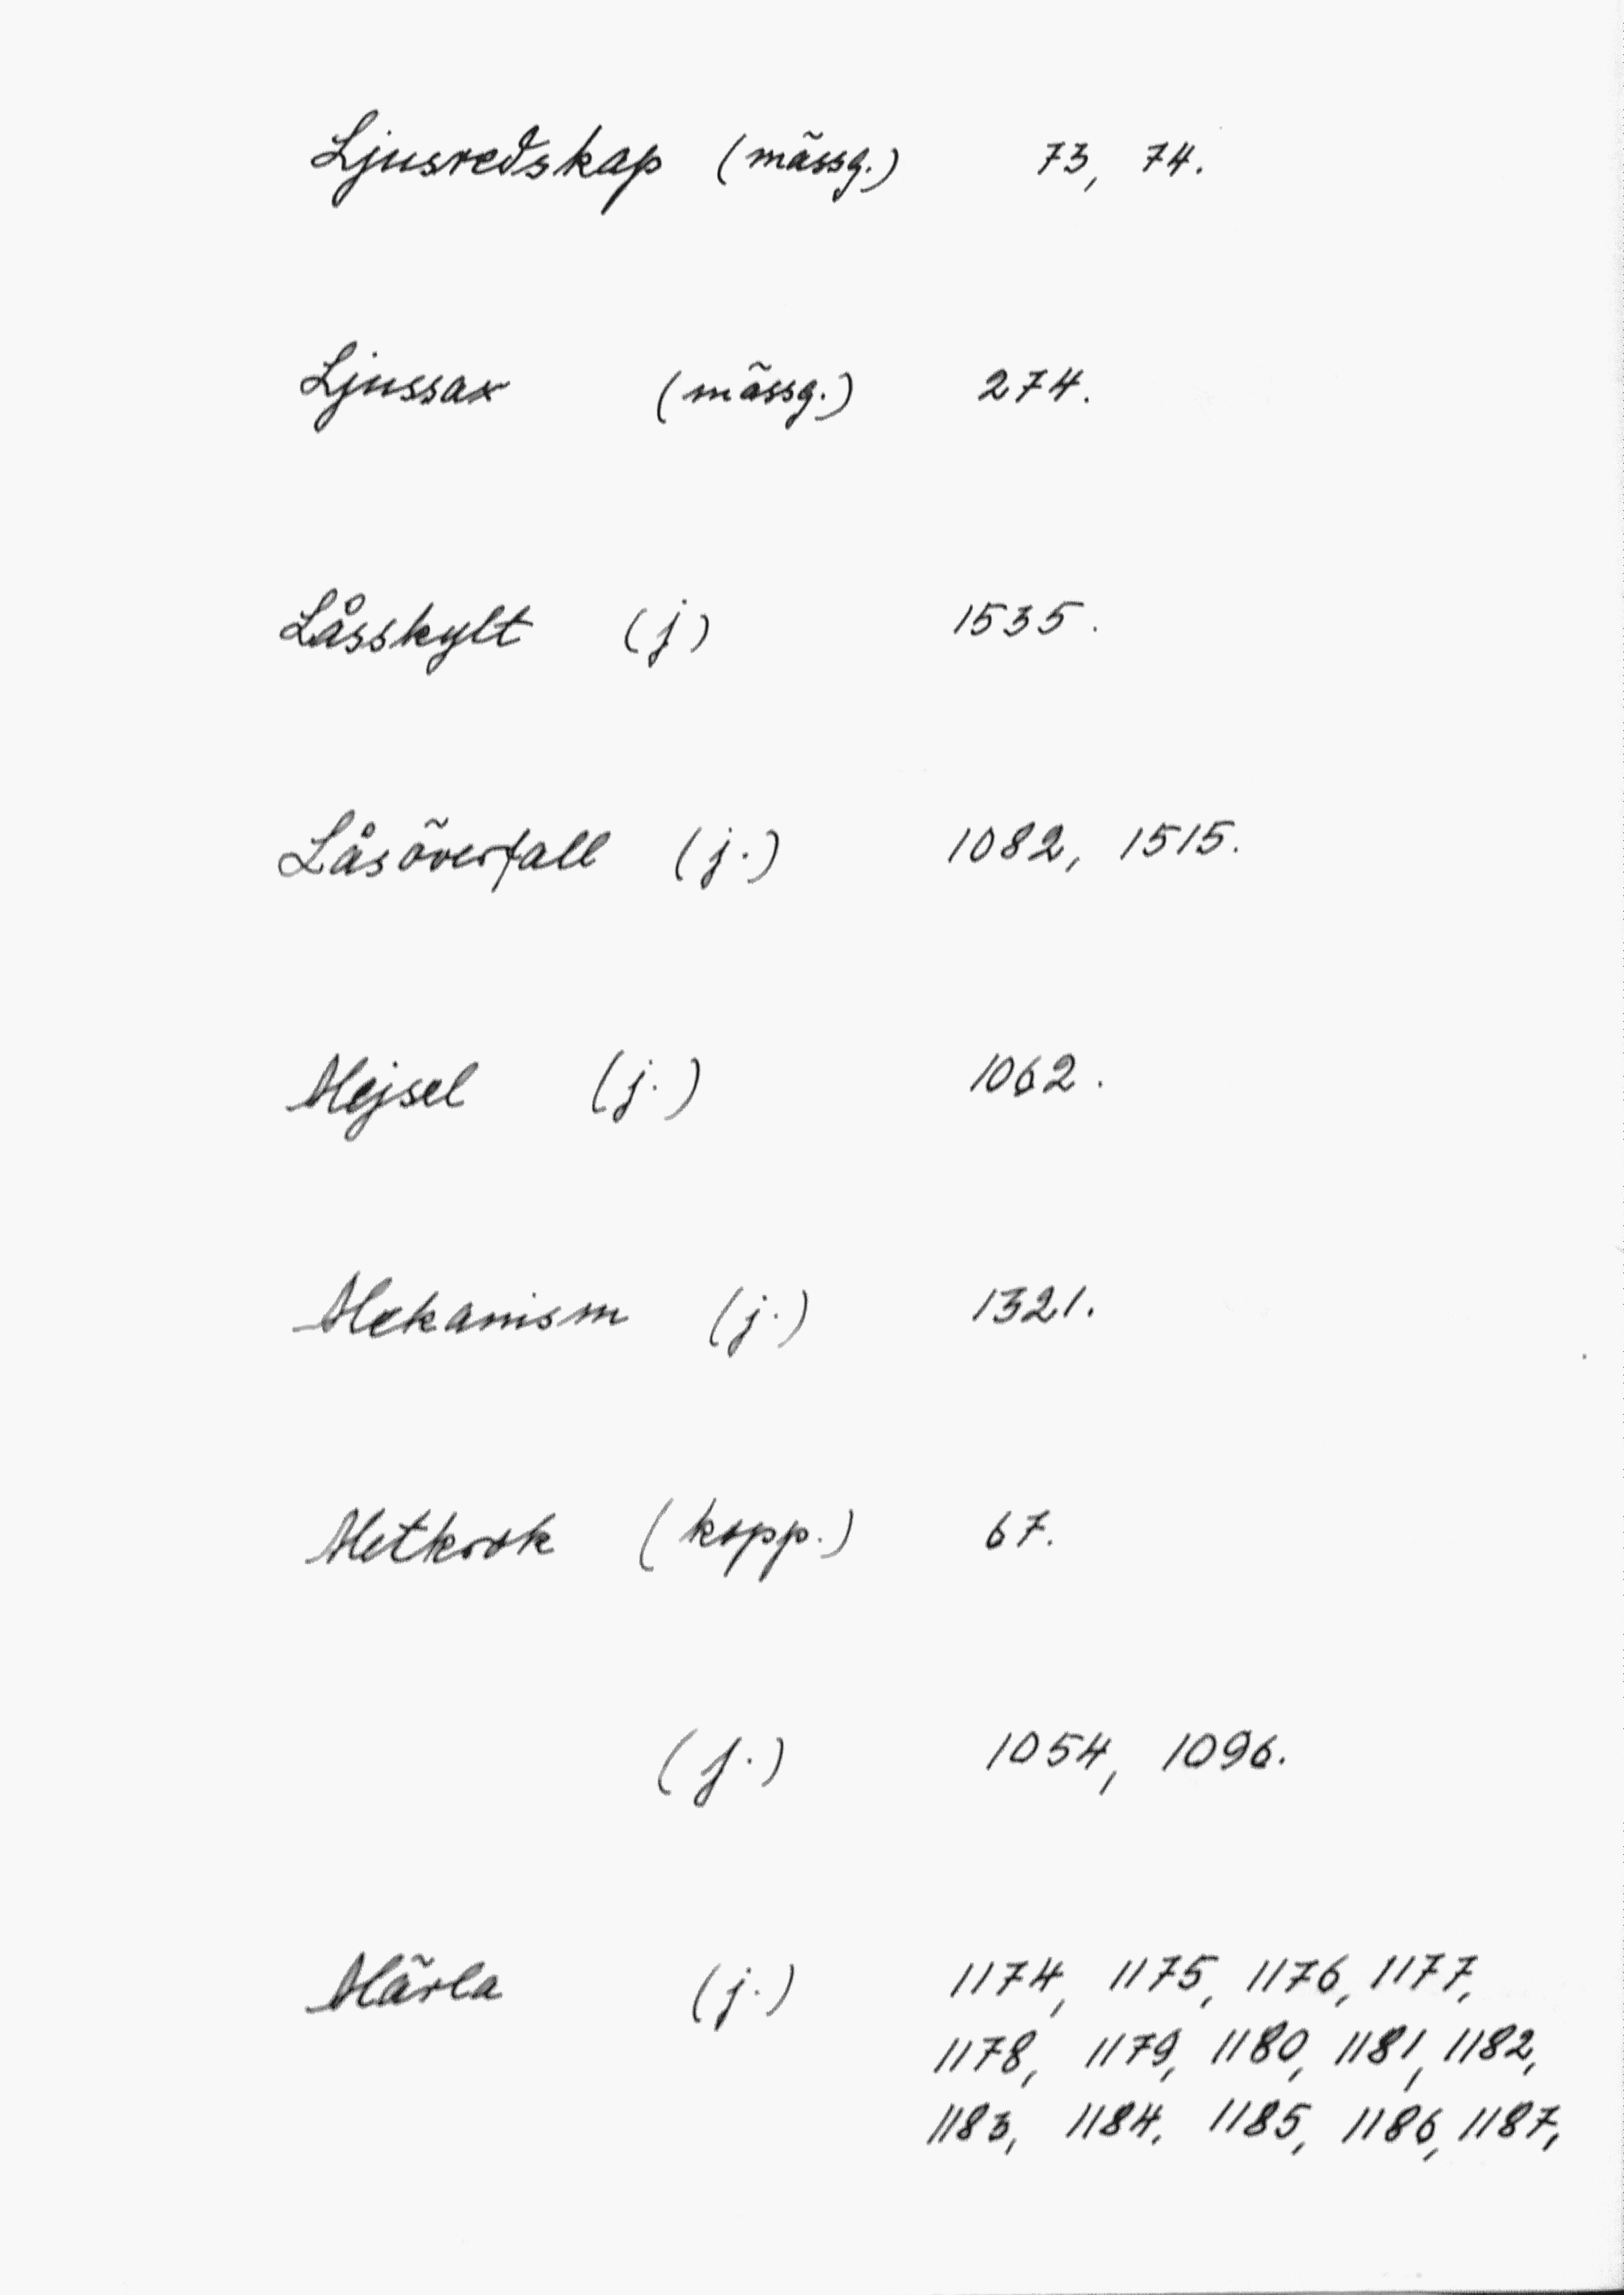 Ljusredskap (mässg.) 73, 74.
Ljussax (mässg.) 274.
Låsskylt (j) 1535.
Låsöverfall (j.) 1082, 1515.
Mejsel (j.) 1062.
Mekanism (j.) 1321.
Metkrok (kopp.) 67.
(j.) 1054, 1096.
Märla (j.) 1174, 1175, 1176, 1177,
1178, 1179, 1180, 1181, 1182,
1183, 1184, 1185, 1186, 1187,